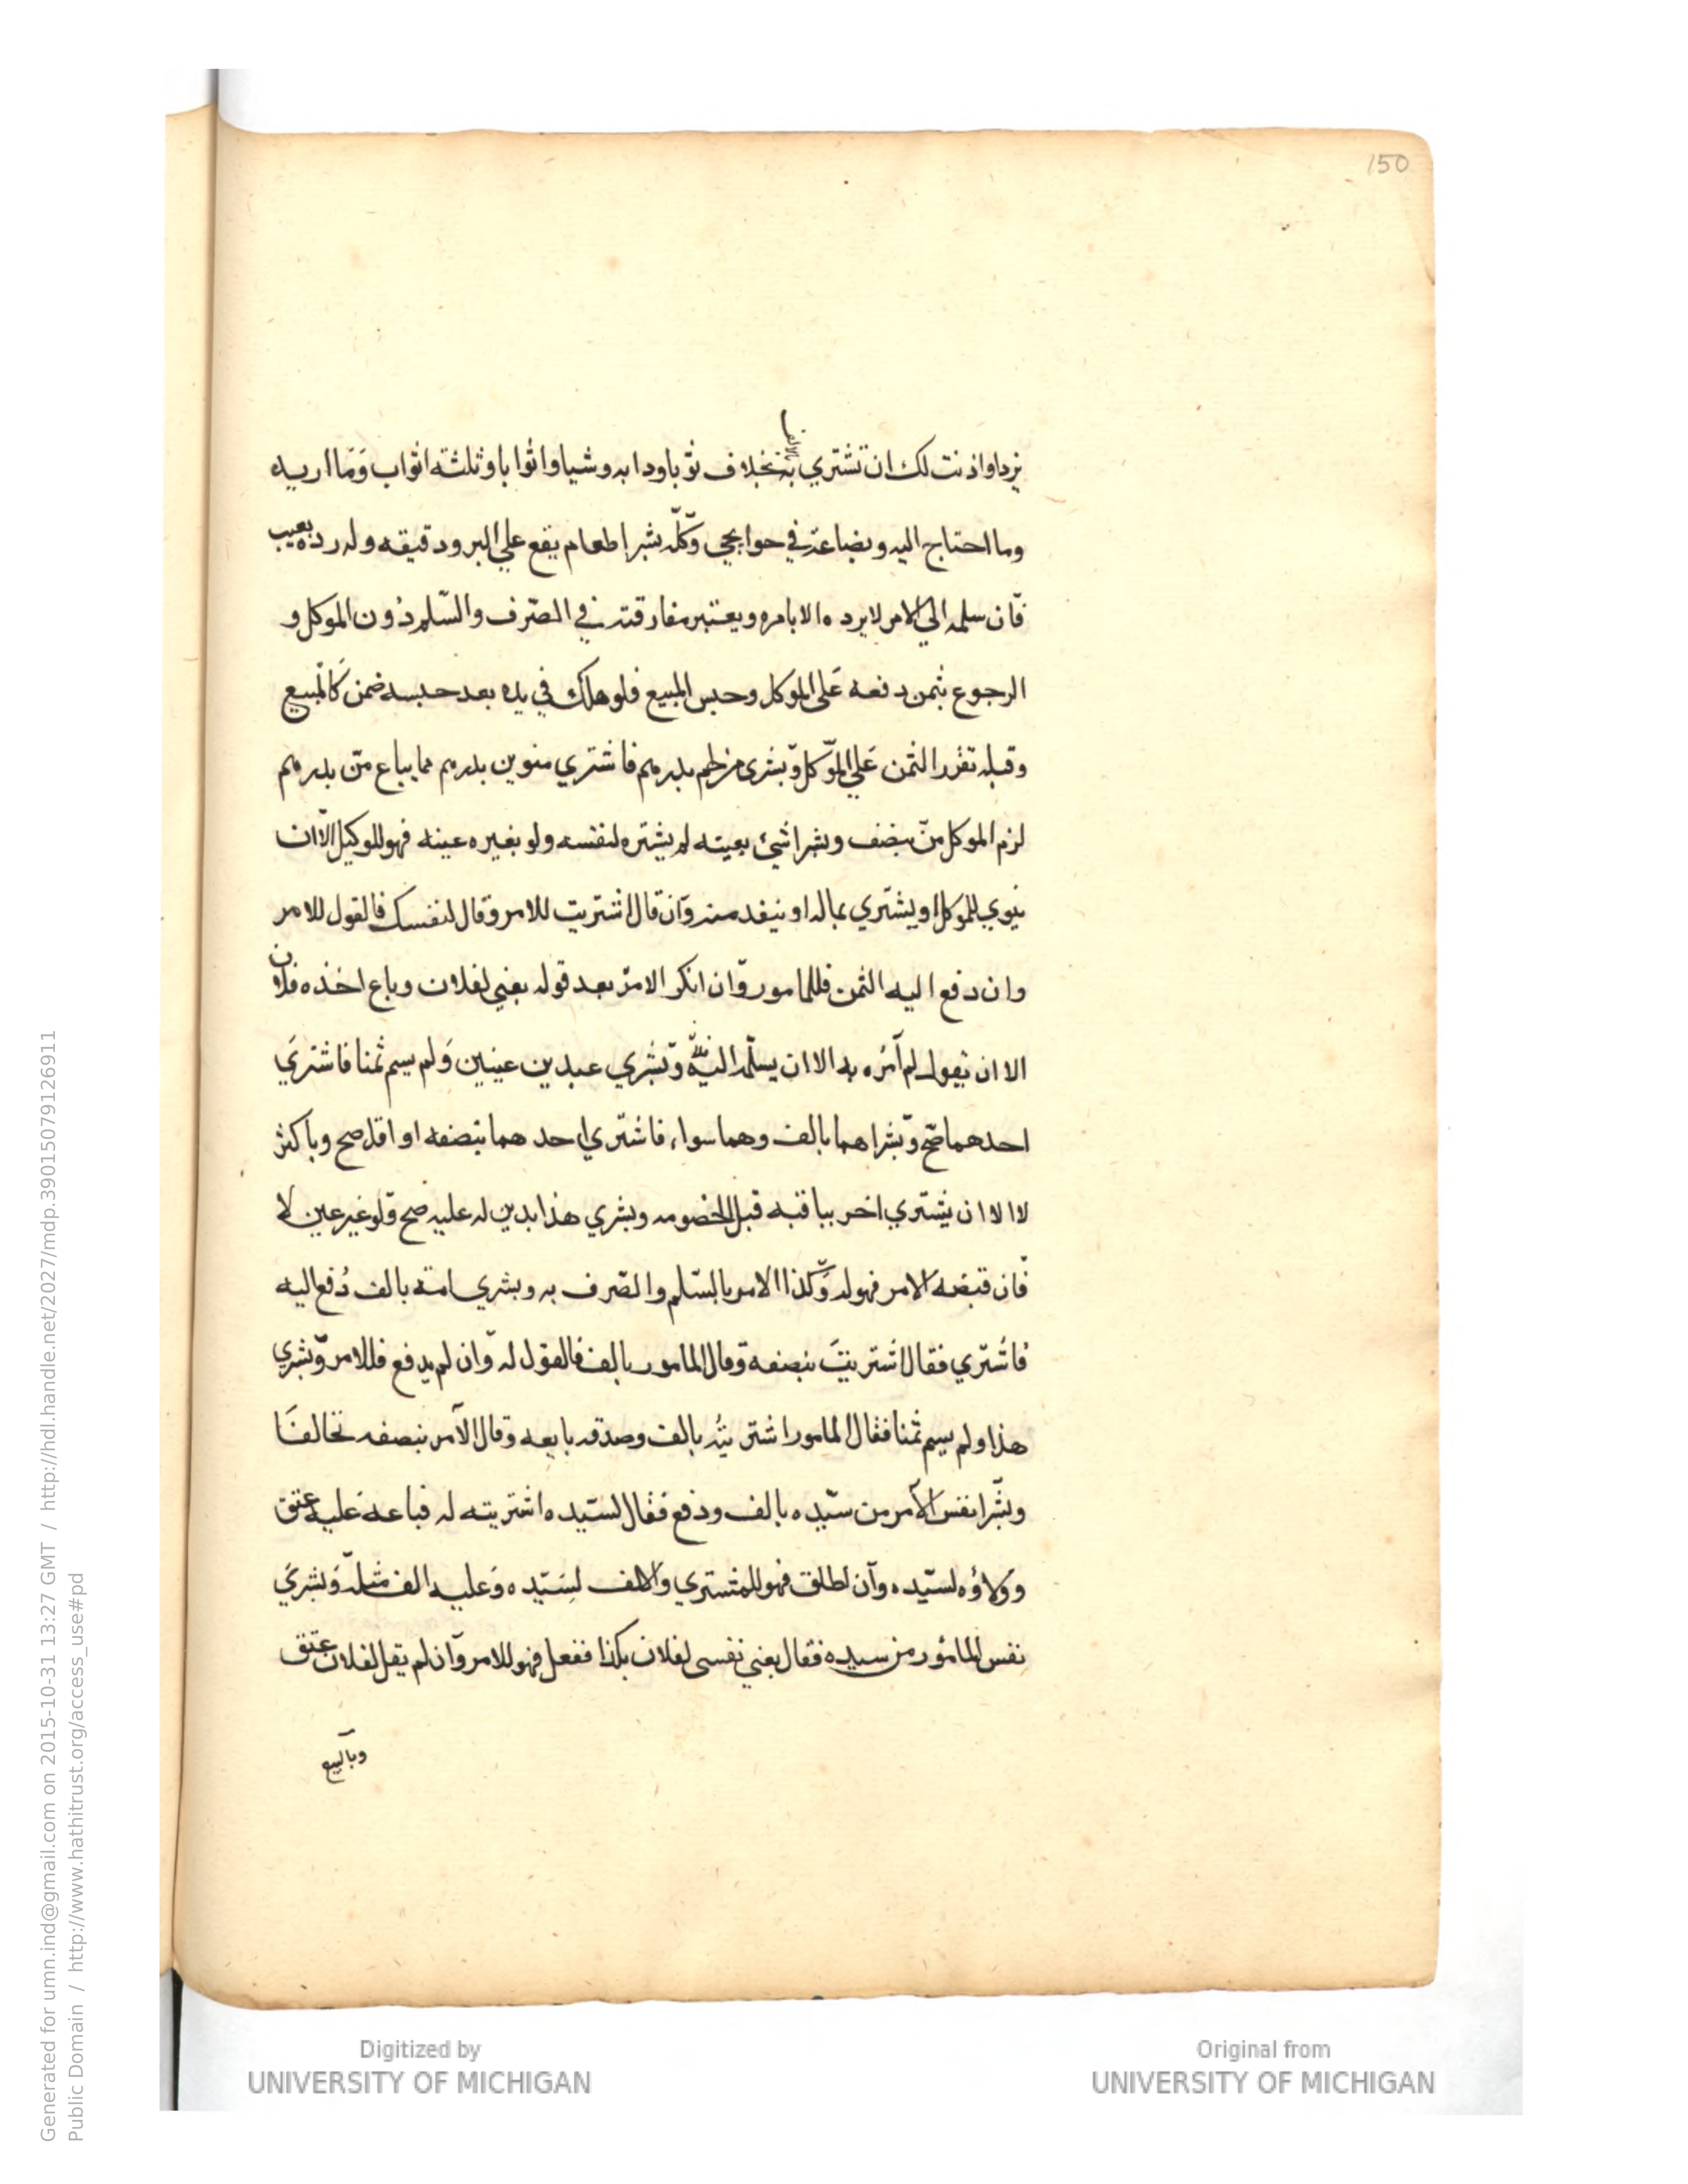 150
يزد او اذنت لك ان تشتري به بخلاف ثوبا ودابه وشيا واثوابا وثلثة اثواب وما اريده
وما احتاج اليه وبضاعة في حوايجي وكله بشرا طعام يقع علي البر ودقيقه وله رده بعيب
فان سلمه الي الامر لا يرده الا بامره ويعتبر مفارقته في الصرف والسلم دون الموكل و
الرجوع بثمن دفعه على الموكل وحبس المبيع فلو هلك في يده بعد حبسه ضمن كالمبيع
وقبله تقرر الثمن علي الموكل وبشرى من لحم بدرهم فاشتري منوين بدرهم مما يباع من بدرهم
لزم الموكل من بنصف وبشرا شئ بعينه لم يشتره لنفسه ولو بغيره عينه فهو للوكيل الا ان
ينوي للموكل او يشتري بماله او ينقد منه وان قال اشتريت للامر وقال لنفسك فالقول للامر
وان دفع اليه الثمن فللمامور وان انكر الامر بعد قوله بعني لفلان وباع اخذه فلان
الا ان يقول لم آمره به الا ان يسلمه اليه وبشري عبدين عينين ولم يسم ثمنا فاشتري
احدهما صح وبشراهما بالف وهما سواء فاشتري احدهما بنصفه او اقل صح وباكثر
لا الا ان يشتري اخر بباقيه قبل الخصومه وبشري هذا بدين له عليه صح ولو غير عين لا
فان قبضه الامر فهو له وكذا الامر بالسلم والصرف به وبشري امة بالف دفع اليه
فاشتري فقال اشتريت بنصفه وقال المامور بالف فالقول له وان لم يدفع فللامر وبشري
هذا ولم يسم ثمنا فقال المامور اشتريته بالف وصدقه بايعه وقال الآمر بنصفه تحالفا
وبشرا نفس الآمر من سيده بالف ودفع فقال لسيده اشتريته له فباعه عليه عتق
وولاؤه لسيده وان اطلق فهو للمشتري والالف لسيده وعليه الف مثله وبشري
نفس المامور من سيده فقال بعني نفسى لفلان بكذا ففعل فهو للامر وان لم يقل لفلان عتق
وبالبيع
Generated for umn.ind@gmail.com on 2015-10-31 13:27 GMT / http://hdl.handle.net/2027/mdp.39015079126911
Public Domain / http://www.hathitrust.org/access_use#pd
Digitized by
UNIVERSITY OF MICHIGAN
Original from
UNIVERSITY OF MICHIGAN